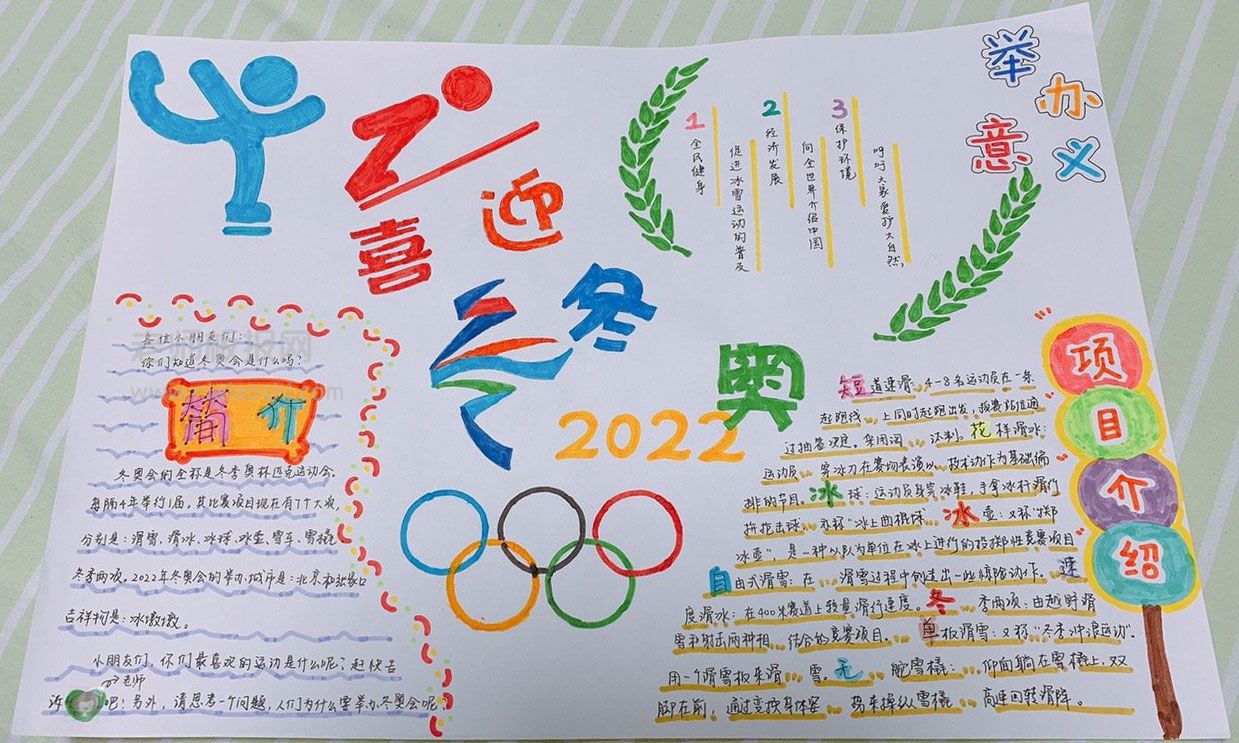 喜迎冬奥
2022
举办意义
1 全民健身
促进冰雪运动的普及
2 经济发展
向全世界介绍中国
3 保护环境
呼吁大家爱护大自然,
各位小朋友们:
你们知道冬奥会是什么吗?
简介
冬奥会的全称是冬季奥林匹克运动会。
每隔4年举行1届,其比赛项目现在有7个大项,
分别是:滑雪、滑冰、冰球、冰壶、雪车、雪橇
冬季两项,2022年冬奥会的举办城市是:北京和张家口
吉祥物是:冰墩墩。
小朋友们,你们最喜欢的运动是什么呢?赶快告
老师
诉 吧!另外,请思考一个问题,人们为什么要举办冬奥会呢?
项目介绍
短道速滑:4-8名运动员在一条
起跑线 上同时起跑出发,预赛站位通
过抽签决定。采用淘 汰制。花样滑冰:
运动员 穿冰刀在赛场表演以 技术动作为基础编
排的节目。冰球:运动员穿冰鞋,手拿冰杆滑行
拼抢击球。亦称"冰上曲棍球 冰壶:又称"掷
冰壶",是一种以队为单位在冰上进行的投掷性竞赛项目
自由式滑雪:在 滑雪过程中创造出一些惊险动作。速
度滑冰:在400米赛道上较量滑行速度。冬 季两项:由越野滑
雪和射击两种相 结合的竞赛项目。单板滑雪:又称"冬季冲浪运动".
用一个滑雪板来滑 雪。无 舵雪橇: 仰面躺在雪橇上,双
脚在前, 通过变换身体姿 势来操纵雪橇 高速回转滑降。